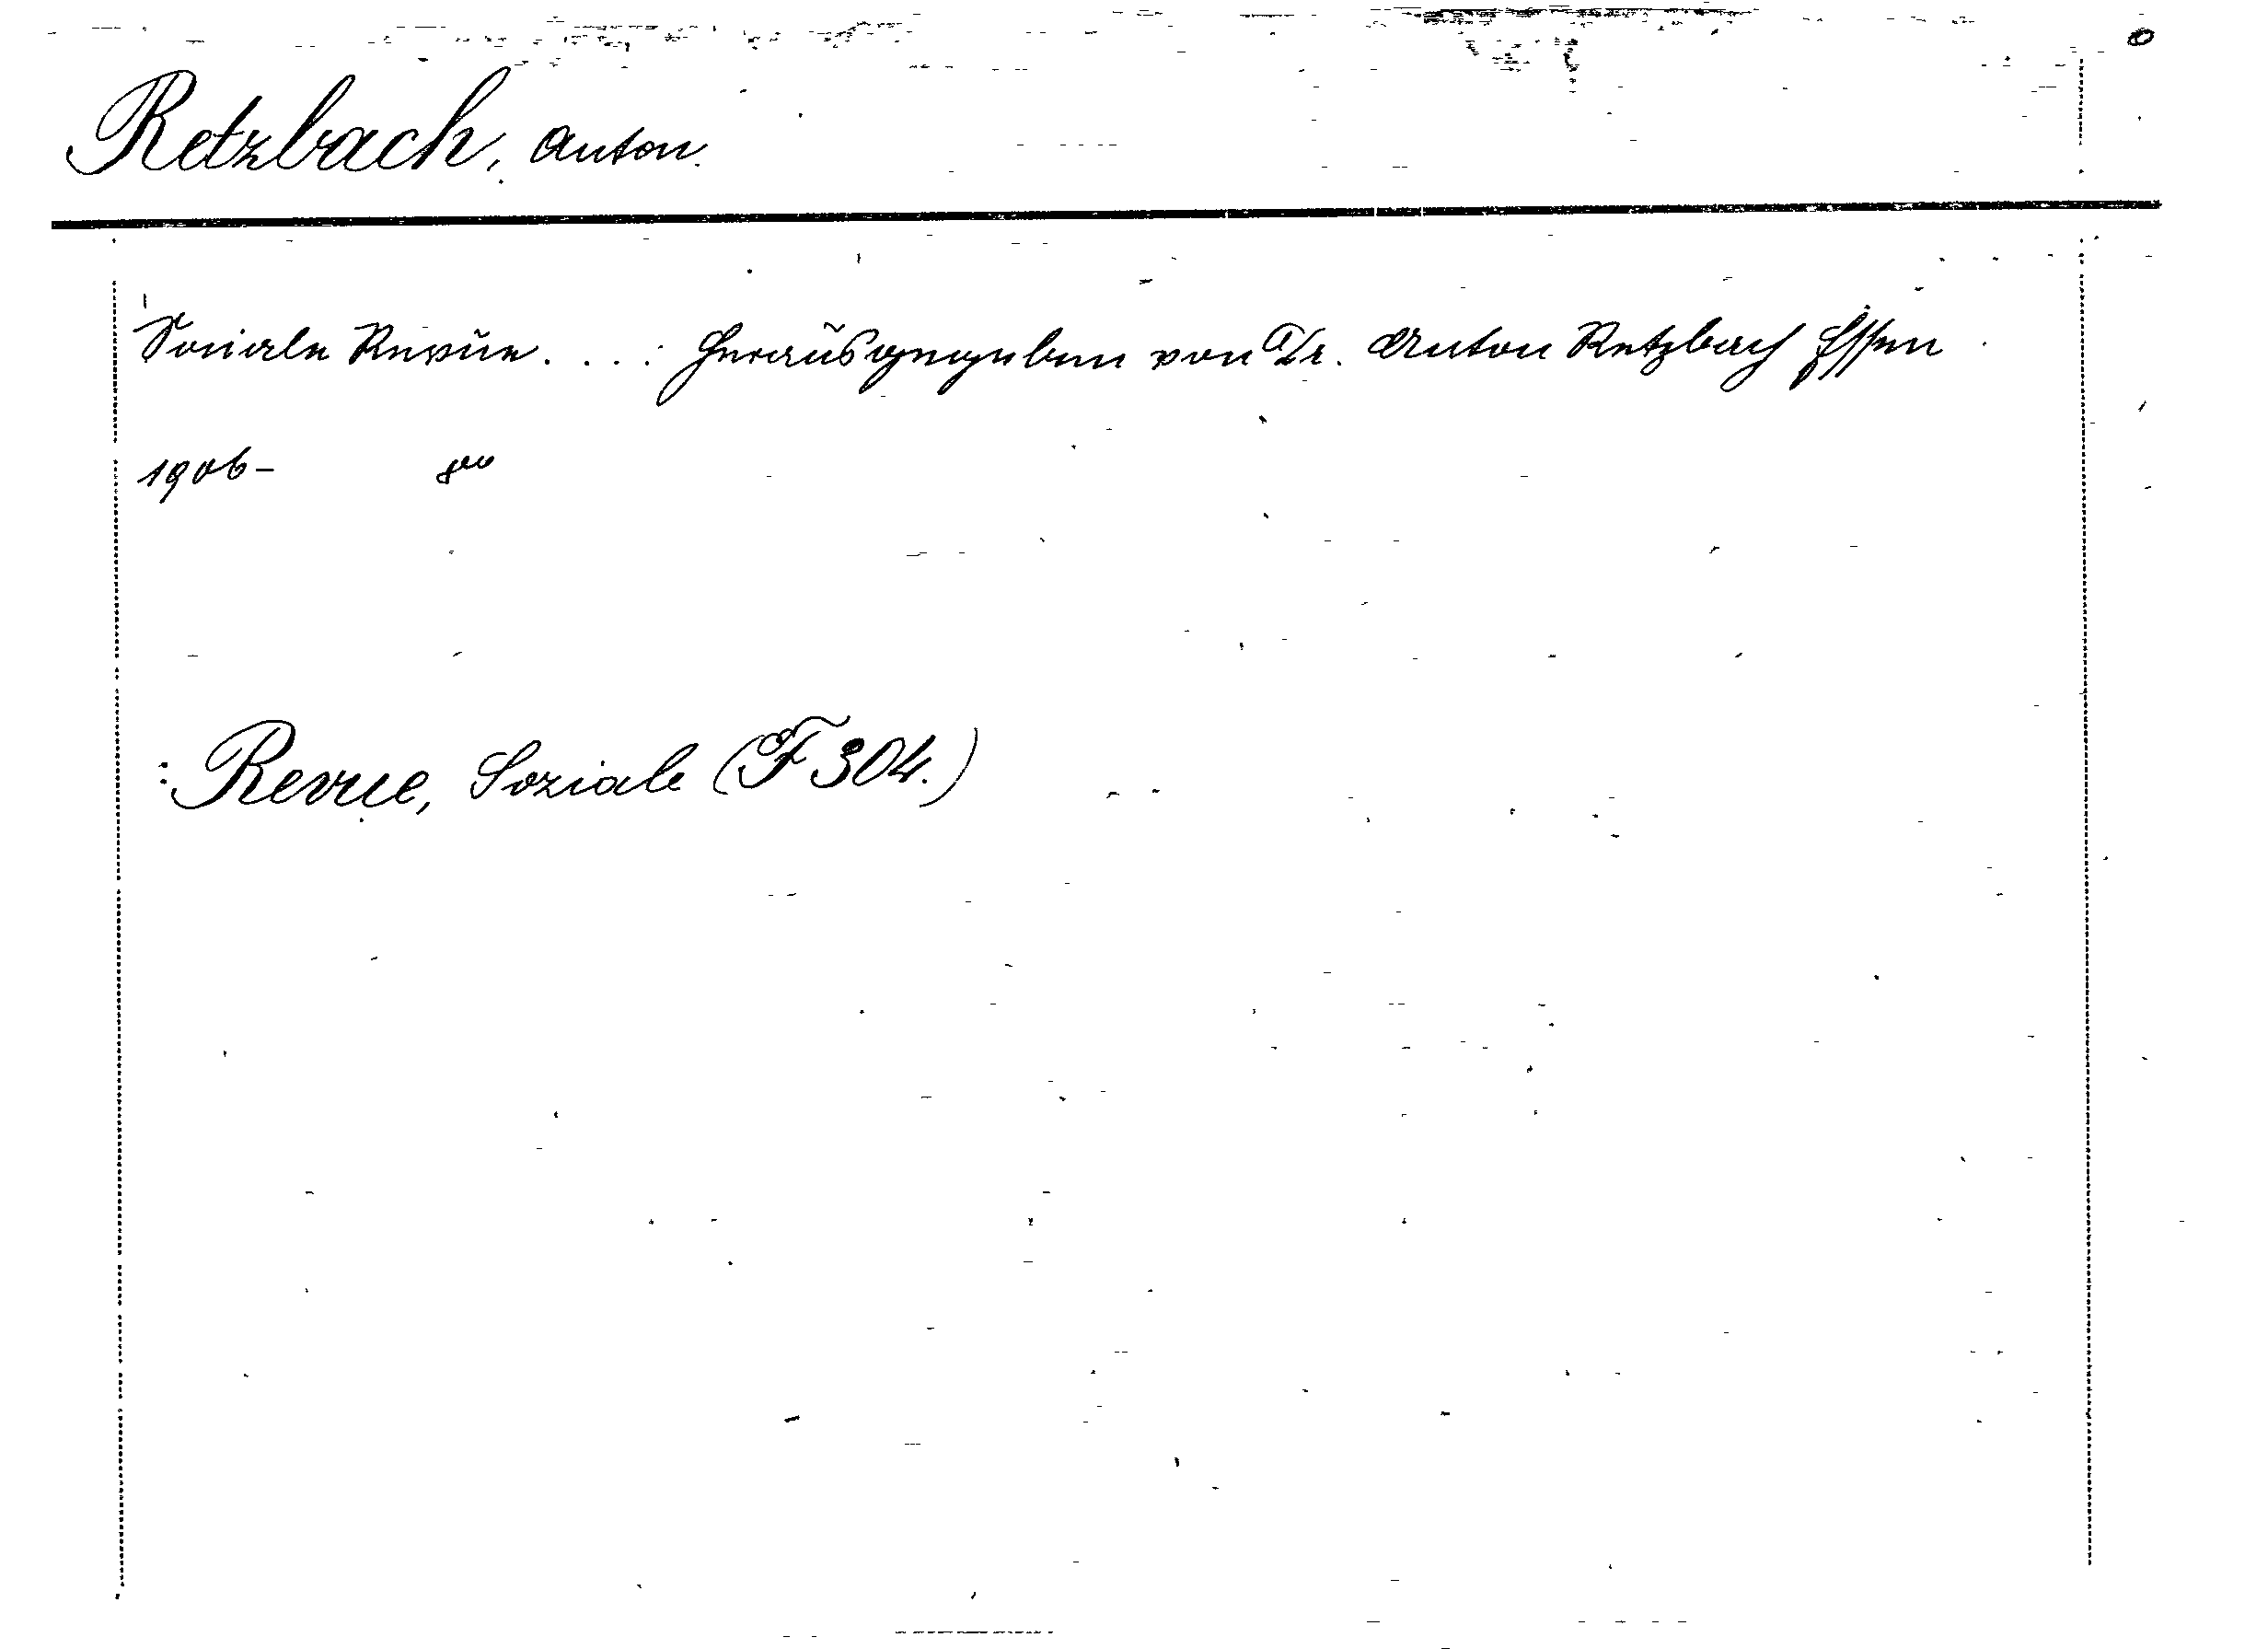 Retzbach, Anton.
Soziale Revue. . . .: Herausgegeben von Dr. Anton Retzbach Essen
1906- 8vo
: Revue, Soziale (F 304.)